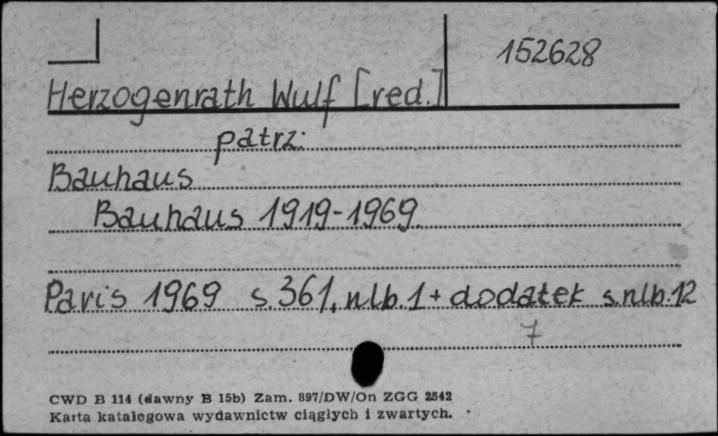 152628
Herzogenrath Wulf [red.]
patrz:
Bauhaus
Bauhaus 1919-1969.
Paris 1969 s. 361, nlb. 1 + dodatek s. nlb. 12
7
CWD B 114 (dawny B 15b) Zam. 897/DW/On ZGG 2542
Karta katalogowa wydawnictw ciągłych i zwartych.